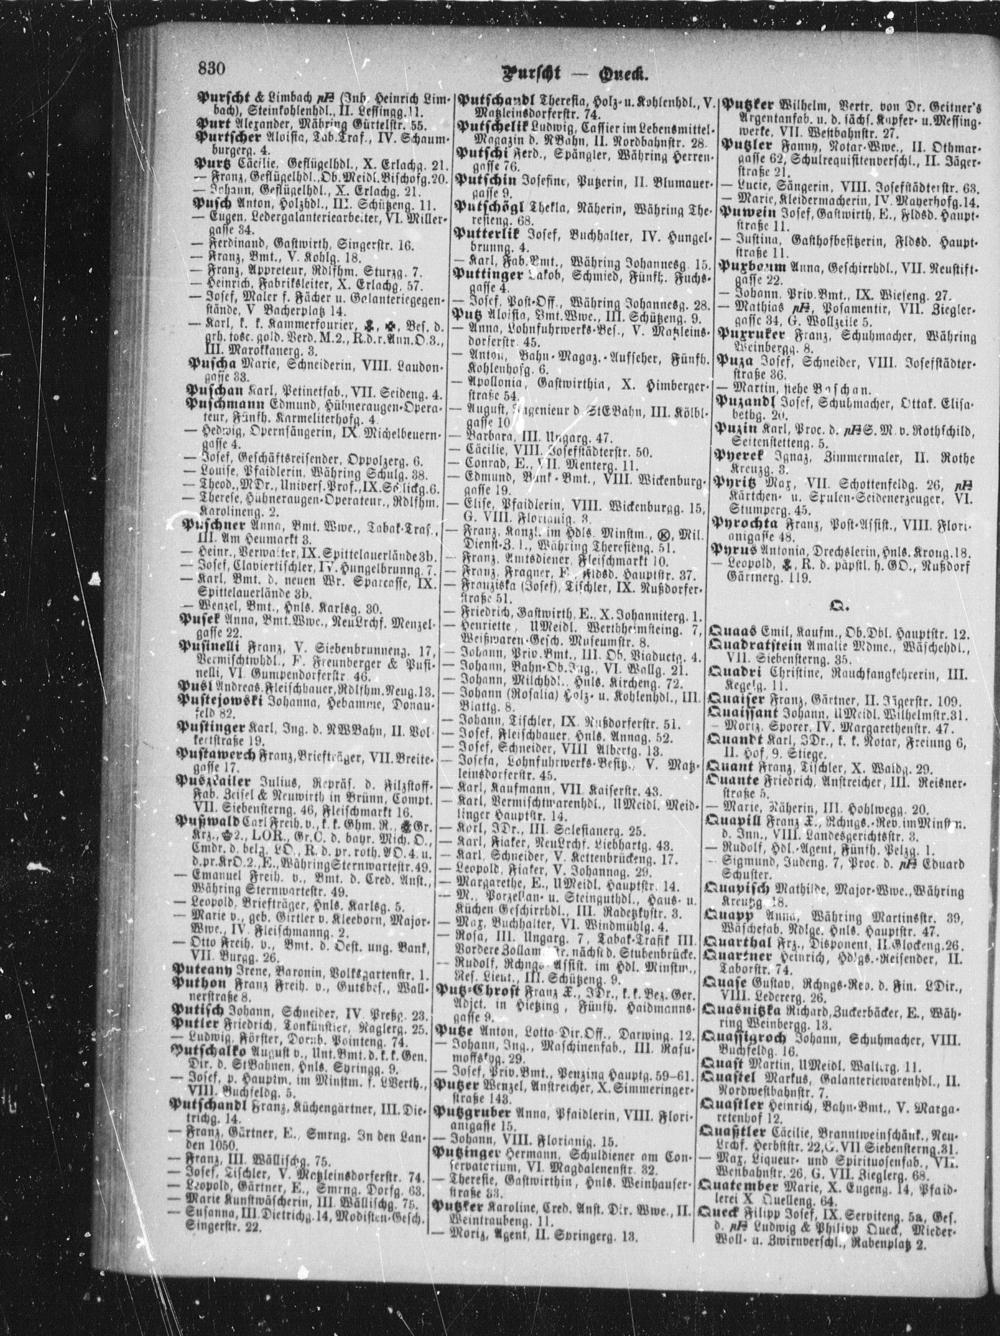 830
Purscht — Queck.
Purscht & Limbach (Inh. Heinrich Lim-
bach), Steinkohlenhdl., II. Leffingg. 11.
Purt Alexander, Währing Gürtelstr. 55.
Purtscher Aloisia, Tab.Traf., IV. Schaum-
burgerg. 4.
Purtz Cäcilie, Geflügelhdl., X. Erlachg. 21.
— Franz, Geflügelhdl., Ob.Meidl.Bischofg.20.
— Johann, Geflügelhdl., X. Erlachg. 21.
Pusch Anton, Holzhdl., III. Schützeng. 11.
— Eugen, Ledergalanteriearbeiter, VI. Miller-
gasse 34.
— Ferdinand, Gastwirth, Singerstr. 16.
— Franz, Bmt., V. Kohlg. 18.
— Franz, Appreteur, Rdlfhm. Sturzg. 7.
— Heinrich, Fabriksleiter, X. Erlachg. 57.
— Josef, Maler f. Fächer u. Galanteriegegen-
stände, V Bacherplatz 14.
— Karl, k. k. Kammerfourier, Bes. d.
grh. tosc. gold. Verd. M.2., R.d.r.Ann.O.3.,
III. Marokkanerg. 3.
Puscha Marie, Schneiderin, VIII. Laudon-
gasse 33.
Puschan Karl, Petinetfab., VII. Seideng. 4.
Puschmann Edmund, Hühneraugen-Opera-
teur, Fünfh. Karmeliterhofg. 4.
— Hedwig, Opernsängerin, IX Michelbeuern-
gasse 4.
— Josef, Geschäftsreisender, Oppolzerg. 6.
— Louise, Pfaidlerin, Währing Schulg. 38.
— Theod., MDr., Univers. Prof., IX. Sensickg.6.
— Therese, Hühneraugen-Operateur., Rdlfhm.
Karolineng. 2.
Puschner Anna, Bmt. Wwe., Tabak-Traf.,
III. Am Heumarkt 3.
— Heinr., Verwalter, IX. Spittelauerlände 3b.
— Josef, Claviertischler, IV. Hungelbrunng 7.
— Karl, Bmt. d. neuen Wr. Sparcasse, IX.
Spittelauerlände 3b.
— Wenzel, Bmt., Hnls. Karlsg. 30.
Pusek Anna, Bmt.Wwe., NeuLrchf. Menzel-
gasse 22.
Pusinelli Franz, V. Siebenbrunneng. 17,
Vermischtwhdl., F. Freunberger & Pusi-
nelli, VI. Gumpendorferstr. 46.
Pusl Andreas, Fleischbauer, Rdlfhm. Neug.13.
Pustejowski Johanna, Hebamme, Donau-
feld 82.
Pustinger Karl, Ing. d. NWBahn, II. Vol-
kertstraße 19.
Pustawerch Franz, Briefträger, VII. Breite-
gasse 17.
Puszkailer Julius, Repräs. d. Filzstoff-
Fab. Beisel & Neuwirth in Brünn, Compt.
VII. Siebensterng. 46, Fleischmarkt 16.
Pußwald Carl Freih. v., k. k. Ghm. R., Gr.
Krz., 2., LOR., Gr.C. d. bayr. Mich. O.,
Cmdr. d. belg. LO., R. d. pr. roth. AO. 4. u.
d.pr.KrO.2., E., Währing Sternwartestr.49.
— Emanuel Freih. v., Bmt. d. Cred. Anst.,
Währing Sternwartestr. 49.
— Leopold, Briefträger, Hnls. Karlsg. 5.
— Marie v., geb. Girtler v. Kleeborn, Major-
Wwe., IV. Fleischmanng. 2.
— Otto Freih. v., Bmt. d. Oest. ung. Bank,
VII. Burgg. 26.
Puteany Irene, Baronin, Volksgartenstr. 1.
Puthon Franz Freih. v., Gutsbes., Wall-
nerstraße 8.
Putisch Johann, Schneider, IV. Preßg. 23.
Putler Friedrich, Tonkünstler, Naglerg. 25.
— Ludwig, Förster, Dornb. Pointeng. 74.
Putschalko August v., Unt.Bmt. d. k. k. Gen.
Dir. d. StBahnen, Hnls. Syringg. 9.
— Josef, p. Hauptm. im Minstm. f. LVerth.,
VIII. Buchfeldg. 5.
Putschandl Franz, Küchengärtner, III. Die-
trichg. 14.
— Franz, Gärtner, E., Smrng. In den Lan-
den 1050.
— Franz, III. Wällischg. 75.
— Josef, Tischler, V. Matzleinsdorferstr. 74.
— Leopold, Gärtner, E., Smrng. Dorfg. 63.
— Marie Kunstwäscherin, III. Wällischg. 75.
— Susanna, III. Dietrichg. 14, Modisten-Gesch.
Singerstr. 22.
Putschandl Theresia, Holz- u. Kohlenhdl., V.
Matzleinsdorferstr. 74.
Putschelik Ludwig, Cassier im Lebensmittel-
Magazin d. NBahn, II. Nordbahnstr. 28.
Putschi Ferd., Spängler, Währing Herren-
gasse 76.
Putschin Josefine, Putzerin, II. Blumauer-
gasse 9.
Putschögl Thekla, Näherin, Währing The-
resieng. 68.
Putterlik Josef, Buchhalter, IV. Hungel-
brunng. 4.
— Karl, Fab.Bmt., Währing Johannesg. 15.
Puttinger Jakob, Schmied, Fünfh. Fuchs-
gasse 4.
— Josef, Post-Off., Währing Johannesg. 28.
Putz Aloisia, Bmt.Wwe., III. Schützeng. 9.
— Anna, Lohnfuhrwerks-Bes., V. Matzleins-
dorferstr. 45.
— Anton, Bahn-Magaz.-Aufseher, Fünfh.
Kohlenhofg. 6.
— Apollonia, Gastwirthin, X. Himberger-
straße 54.
— August, Ingenieur d. StEBahn, III. Kölbl-
gasse 10.
— Barbara, III. Ungarg. 47.
— Cäcilie, VIII. Josefstädterstr. 50.
— Conrad, E., VII. Menterg. 11.
— Edmund, Bank-Bmt., VIII. Wickenburg-
gasse 19.
— Elise, Pfaidlerin, VIII. Wickenburgg. 15,
G. VIII. Florianig. 3.
— Franz, Kanzl. im Hdls. Minstm., Mil.
Dienst-Z. 1., Währing Theresieng. 51.
— Franz, Amtsdiener, Fleischmarkt 10.
— Franz, Fragner, E., Fldsd. Hauptstr. 37.
— Franziska (Josef), Tischler, IX. Nußdorfer-
straße 51.
— Friedrich, Gastwirth, E., X. Johanniterg. 1.
— Henriette, UMeidl. Werthheimsteing. 7,
Weißwaren-Gesch. Museumstr. 8.
— Johann, Priv.Bmt., III. Ob. Viaductg. 4.
— Johann, Bahn-Ob.Ing., VI. Wallg. 21.
— Johann, Milchhdl. Hnls. Kircheng. 72.
— Johann (Rosalia) Holz- u. Kohlenhdl., III.
Blattg. 8.
— Johann, Tischler, IX. Nußdorferstr. 51.
— Josef, Fleischbauer, Hnls. Annag. 52.
— Josef, Schneider, VIII Albertg. 13.
— Josefa, Lohnfuhrwerks-Besitz., V. Matz-
leinsdorferstr. 45.
— Karl, Kaufmann, VII. Kaiserstr. 43.
— Karl, Vermischtwarenhdl., UMeidl. Meid-
linger Hauptstr. 14.
— Karl, JDr., III. Salesianerg. 25.
— Karl, Fiaker, NeuLrchf. Liebhartg. 43.
— Karl, Schneider, V. Kettenbrückeng. 17.
— Leopold, Fiaker, V. Johannag. 29.
— Margarethe, E., UMeidl. Hauptstr. 14.
— M., Porzellan- u. Steinguthdl., Haus- u.
Küchen Geschirrhdl., III. Radetzkystr. 3.
— Max, Buchhalter, VI. Windmühlg. 4.
— Rosa, III. Ungarg. 7, Tabak-Trafik III.
Vordere Zollamtsstr. nächst d. Stubenbrücke.
— Rudolf, Rchngs-Assist. im Hdl. Minstm.,
Res. Lieut., III. Schützeng. 9.
Putz-Chrost Franz X., JDr., k. k. Bez. Ger.
Adjct. in Hietzing, Fünfh. Haidmanns-
gasse 9.
Putze Anton, Lotto Dir.Off., Darwing. 12.
— Johann, Ing., Maschinenfab., III. Rasu-
moffskyg. 29.
— Josef, Priv.Bmt., Penzing Hauptg. 59–61.
Putzer Wenzel, Anstreicher, X. Simmeringer-
straße 143.
Putzgruber Anna, Pfaidlerin, VIII. Flori-
anigasse 15.
— Johann, VIII. Florianig. 15.
Putzinger Hermann, Schuldiener am Con-
servatorium, VI. Magdalenenstr. 32.
— Theresie, Gastwirthin, Hnls. Weinhauser-
straße 83.
Putzker Karoline, Cred. Anst. Dir. Wwe., II.
Weintraubeng. 11.
— Moriz, Agent, II. Springerg. 13.
Putzker Wilhelm, Vertr. von Dr. Geitner's
Argentanfab. u. d. sächs. Kupfer- u. Messing-
werke, VII. Westbahnstr. 27.
Putzler Fanny, Notar-Wwe., II. Othmar-
gasse 62, Schulrequisitenverschl., II. Jäger-
straße 21.
— Lucie, Sängerin, VIII. Josefstädterstr. 63.
— Marie, Kleidermacherin, IV. Mayerhofg.14.
Puwein Josef, Gastwirth, E., Fldsd. Haupt-
straße 11.
— Justina, Gasthofbesitzerin, Fldsd. Haupt-
straße 11.
Puxbaum Anna, Geschirrhdl., VII. Neustift-
gasse 22.
— Johann, Priv. Bmt., IX. Wieseng. 27.
— Mathias, Posamentir, VII. Ziegler-
gasse 34, G. Wollzeile 5.
Puxruker Franz, Schuhmacher, Währing
Weinbergg. 8.
Puza Josef, Schneider, VIII. Josefstädter-
straße 36.
— Martin, siehe Baschan.
Puzandl Josef, Schuhmacher, Ottak. Elisa-
bethg. 20.
Puzin Karl, Proc. d. S. M. v. Rothschild,
Seitenstetteng. 5.
Pyerek Ignaz, Zimmermaler, II. Rothe
Kreuzg. 3.
Pyritz Max, VII. Schottenfeldg. 26,
Kärtchen- u. Spulen-Seidenerzeuger, VI.
Stumperg. 45.
Pyrochta Franz, Post-Assist., VIII. Flori-
anigasse 48.
Pyrus Antonia, Drechslerin, Hnls. Krong.18.
— Leopold, R. d. päpstl. h. GO., Nußdorf
Gärtnerg. 119.
Q.
Quaas Emil, Kaufm., Ob.Dbl. Hauptstr. 12.
Quadratstein Amalie Mdme., Wäschehdl.,
VII. Siebensterng. 35.
Quadri Christine, Rauchfangkehrerin, III.
Kegelg. 11.
Quaiser Franz, Gärtner, II. Jägerstr. 109.
Quaissant Johann, UMeidl. Wilhelmstr.31.
— Moriz, Sporer, IV. Margarethenstr. 47.
Quandt Karl, JDr., k. k. Notar, Freiung 6,
II. Hof, 9. Stiege.
Quant Franz, Tischler, X. Waldg. 29.
Quante Friedrich, Anstreicher, III. Reisner-
straße 5.
— Marie, Näherin, III. Hohlwegg. 20.
Quapill Franz X., Rchngs.-Rev. im Minstm.
d. Inn., VIII. Landesgerichtsstr. 3.
— Rudolf, Hdl.-Agent, Fünfh. Pelzg. 1.
— Sigmund, Judeng. 7, Proc. d. Eduard
Schuster.
Quapisch Mathilde, Major-Wwe., Währing
Kreutzg. 18.
Quapp Anna, Währing Martinsstr. 39,
Wäschefab. Ndlge. Hnls. Hauptstr. 47.
Quarthal Frz., Disponent, II. Glockeng. 26.
Quartner Heinrich, Hdlgs.-Reisender, II.
Taborstr. 74.
Quase Gustav, Rchngs-Rev. d. Fin. LDir.,
VIII. Ledererg. 26.
Quasnitzka Richard, Zuckerbäcker, E., Wäh-
ring Weinbergg. 13.
Quassigroch Johann, Schuhmacher, VIII.
Buchfeldg. 16.
Quast Martin, UMeidl. Wallerg. 11.
Quastel Markus, Galanteriewarenhdl., II.
Nordwestbahnstr. 7.
Quastler Heinrich, Bahn-Bmt., V. Marga-
rethenhof 12.
Quaßtler Cäcilie, Branntweinschänk., Neu-
Lrchf. Herbststr. 22, G. VII Siebensterng.31.
— Max, Liqueur- und Spirituosenfab., VII.
Westbahnstr. 26, G. VII. Zieglerg. 68.
Quatember Marie, X. Eugeng. 14, Pfaid-
lerei X Quelleng. 64.
Queck Filipp Josef, IX. Serviteng. 5a, Ges.
d. Ludwig & Philipp Queck, Mieder-
Woll- u. Zwirnverschl., Rabenplatz 2.